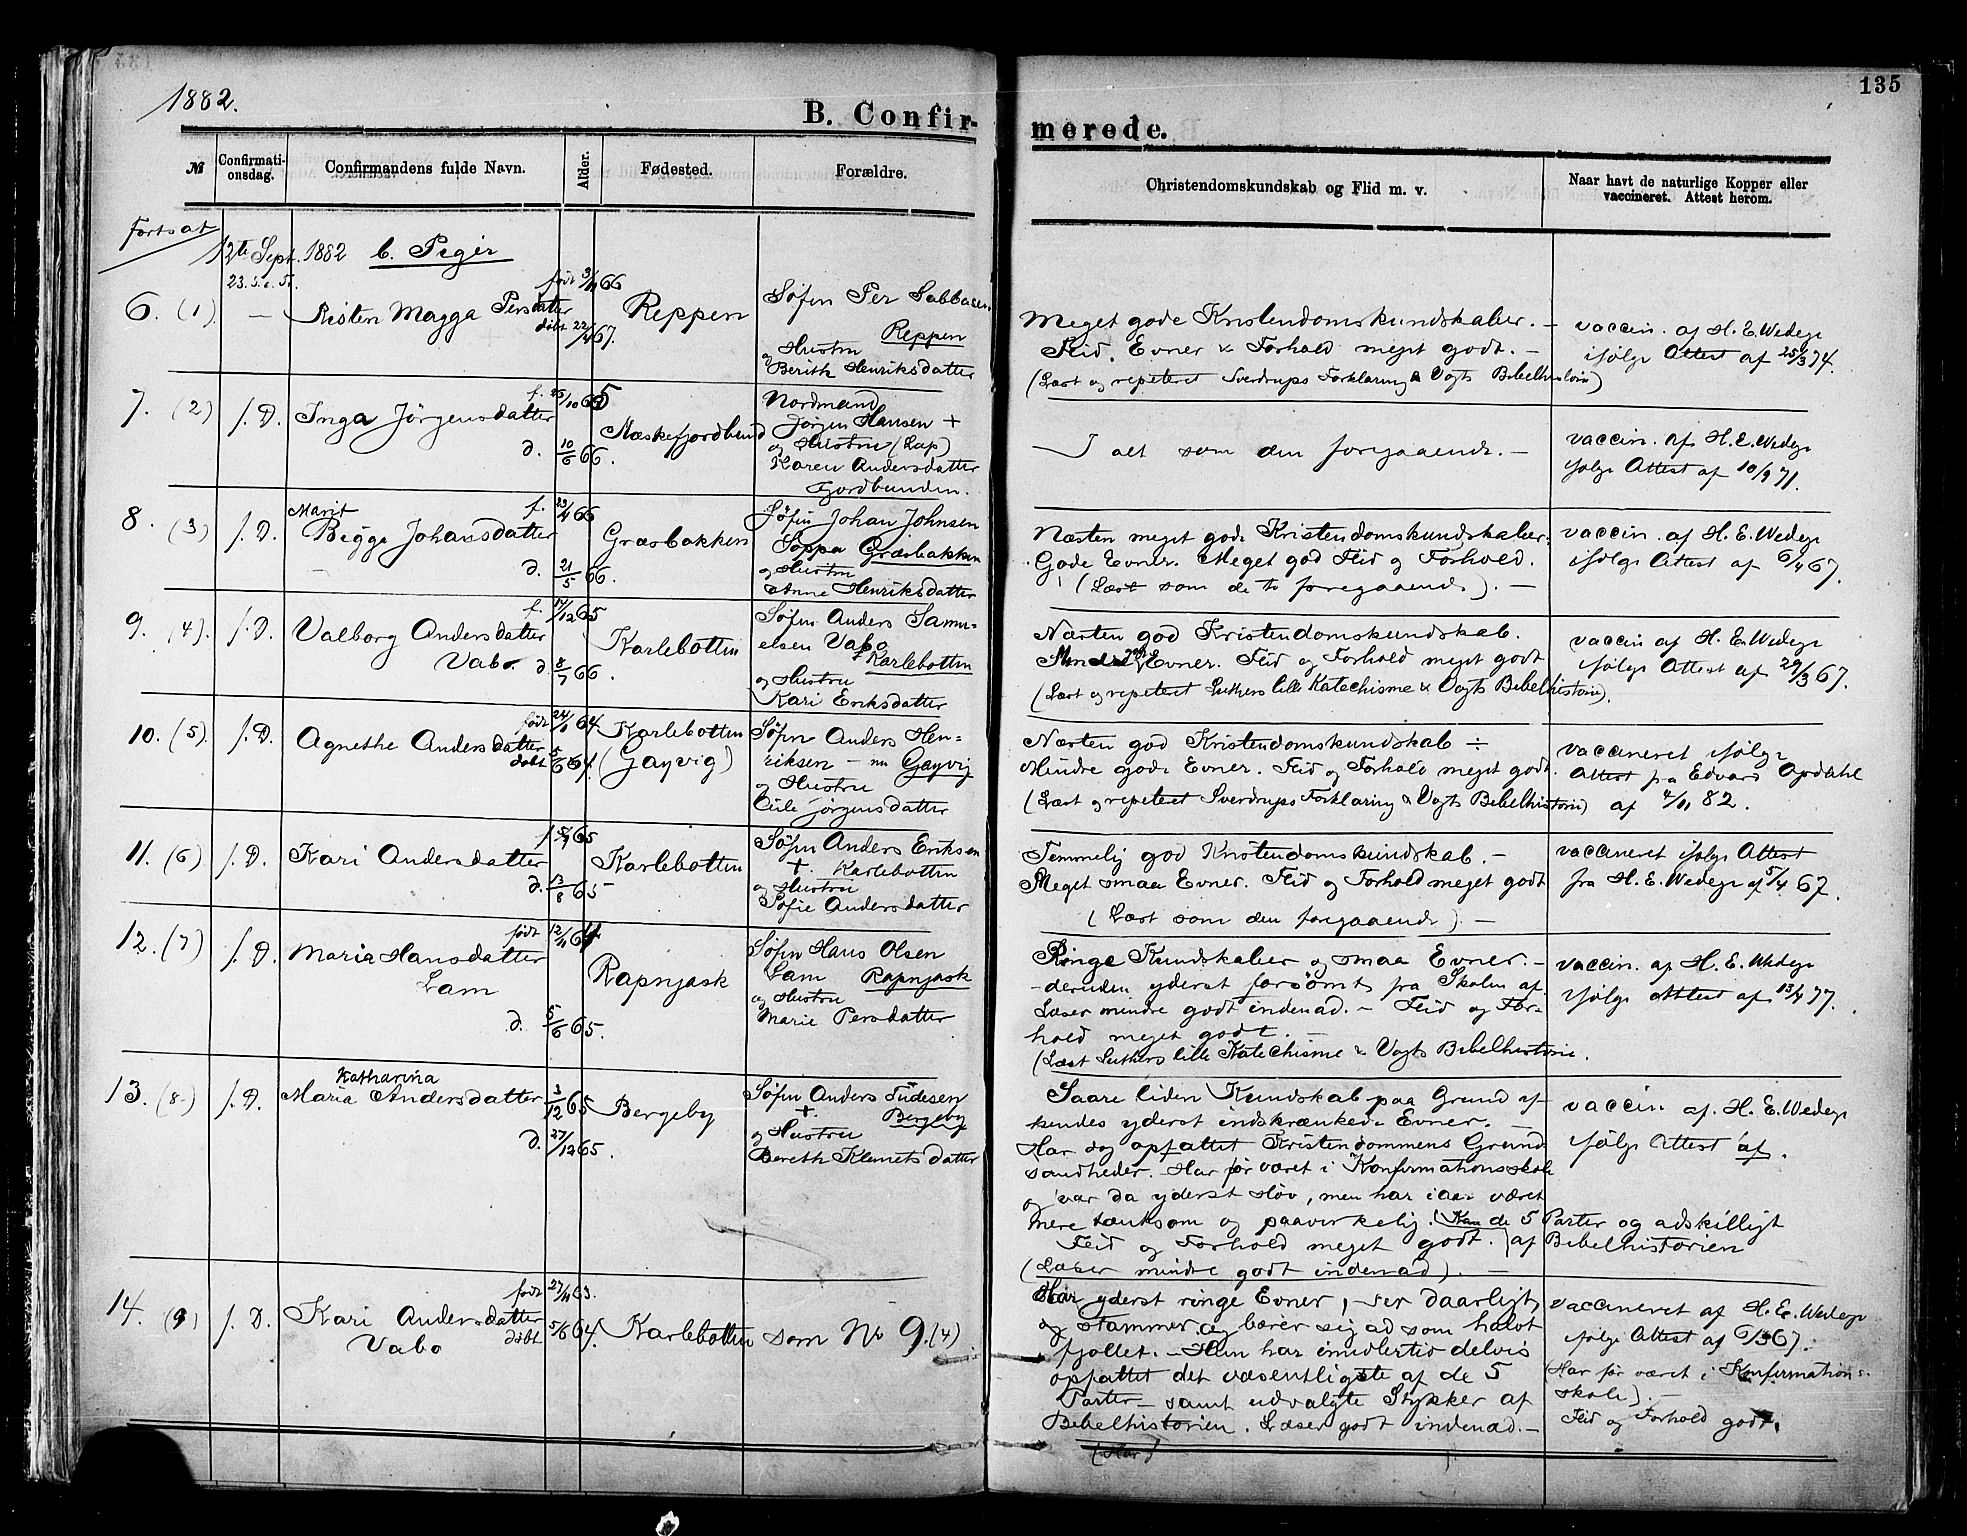 135
1882.
B. Confirmerede.
№
Confirmationsdag.
Confirmandens fulde Navn.
Alder.
Fødested.
Forældre.
Christendomskundskab og Flid m. v.
Naar havt de naturlige Kopper eller
vaccineret. Attest herom.
Fortsat
12te Sept. 1882 b. Piger
6. (1) — Risten Magga Persdatter
født 9/11 66
døbt 22/4 67.
Reppen
Søfin Per Sabbasen
Reppen
og Hustru
Berith Henriksdatter
Meget gode Kristendomskundskaber. —
Flid, Evner & Forhold meget godt. —
(Læst og repeteret Sverdrups Forklaring & Vogts Bibelhistorie)
vaccin. af H. E. Wedege
ifølge Attest af 25/3 74.
7. (2) s. D. Inga Jörgensdatter
f. 25/10 65
d. 10/6 66.
Mæskefjordbund
Nordmand
Jörgen Hansen +
og Hustru (Lap)
Karen Andersdatter
Fjordbunden.
— I alt som den foregaaende. —
vaccin. af H. E. Wedege
ifølge Attest af 10/9 71.
8. (3) s. D. Marit
Bigge Johansdatter
f. 23/4 66
d. 21/5 66.
Græsbakken
Søfin Johan Johnsen
Soppa Græsbakken
og Hustru
Anne Henriksdatter
Næsten meget gode Kristendomskundskaber.
Gode Evner. Meget god Flid og Forhold.
(Læst som de to foregaaende). —
vaccin. af H. E. Wedege
ifølge Attest af 6/4 67.
9. (4). s. D. Valborg Andersdatter
Vabo
f. 17/12 65
d. 8/7 66.
Karlebotten
Søfin Anders Samuelsen
Vabo
Karlebotten
og Hustru
Kari Eriksdatter
Næsten god Kristendomskundskab.
Mindre gode Evner. Flid og Forhold meget godt
(Læst og repeteret Luthers lille Katechisme & Vogts Bibelhistorie).
vaccin af H. E. Wedege
ifølge Attest af 29/3 67.
10. (5). s. D. Agnethe Andersdatter
født 24/1 64.
døbt 5/6 64.
Karlebotten
(Gayvig)
Søfin Anders Henriksen
— nu Gayvig
og Hustru
Jörgensdatter
Næsten god Kristendomskundskab ÷
Mindre gode Evner. Flid og Forhold meget godt.
(Læst og repeteret Sverdrups Forklaring & Vogts Bibelhistorie)
vaccineret ifølge
Attest fra Edvard Opdahl
af 4/11 82.
11. (6) s. D. Kari Andersdatter
65
d. 13/8 65
Karlebotten
Søfin Anders Eriksen
+. Karlebotten
og Hustru
Sofie Andersdatter
Temmelig god Kristendomskundskab. —
Meget smaa Evner. Flid og Forhold meget godt
(Læst som den foregaaende) —
vaccineret ifølge Attest
fra H. E. Wedege af 5/4 67.
12. (7) s. D. Maria Hansdatter
Lam
født 12/11 64
d. 5/6 65.
Rapnjask
Søfin Hans Olsen
Lam Rapnjask
og Hustru
Marie Persdatter
Ringe Kundskaber og smaa Evner. —
— desuden yderst forsømt fra Skolen af.
Læser mindre godt indenad. — Flid og Forhold
meget godt. —
(Læst Luthers lille Katechisme & Vogts Bibelhistorie.
vaccin. af H. E. Wedege
ifølge Attest af 13/4 77.
13. (8) s. D. Katharina
Maria Andersdatter
3/12 65
d. 27/12 65.
Bergeby
Søfin Anders Tudesen
+. Bergeby
og Hustru
Bereth Klemetsdatter
Saare liden Kundskab paa Grund af
hendes yderst indskrænkede Evner. —
Har dog opfattet Kristendommens Grundsandheder.
Har før været i Konfirmationsskole
og var da yderst sløv, men har iaar været
mere tænksom og paavirkelig. (Kan de 5 Parter og adskilligt
Flid og Forhold meget godt. ) af Bibelhistorien
(Læser mindre godt indenad). —
vaccin af. H. E. Wedege
ifølge Attest af.
14. (9) s. D. Kari Andersdatter
Vabo
født 27/11 63.
døbt 5/6 64.
Karlebotten
som No 9. (4)
Har yderst ringe Evner, ser daarligt,
og stammer og bærer sig ad som halvt
fjollet. — Hun har imidlertid delvis
opfattet det væsentligste af de 5
Parter — samt udvalgte Stykker af
Bibelhistorien. Læser godt indenad. —
(Har)
vaccineret af H. E. Wedege
ifølge Attest af 67.
(Har før været i Konfirmationsskole).
—
Flid og Forhold godt.